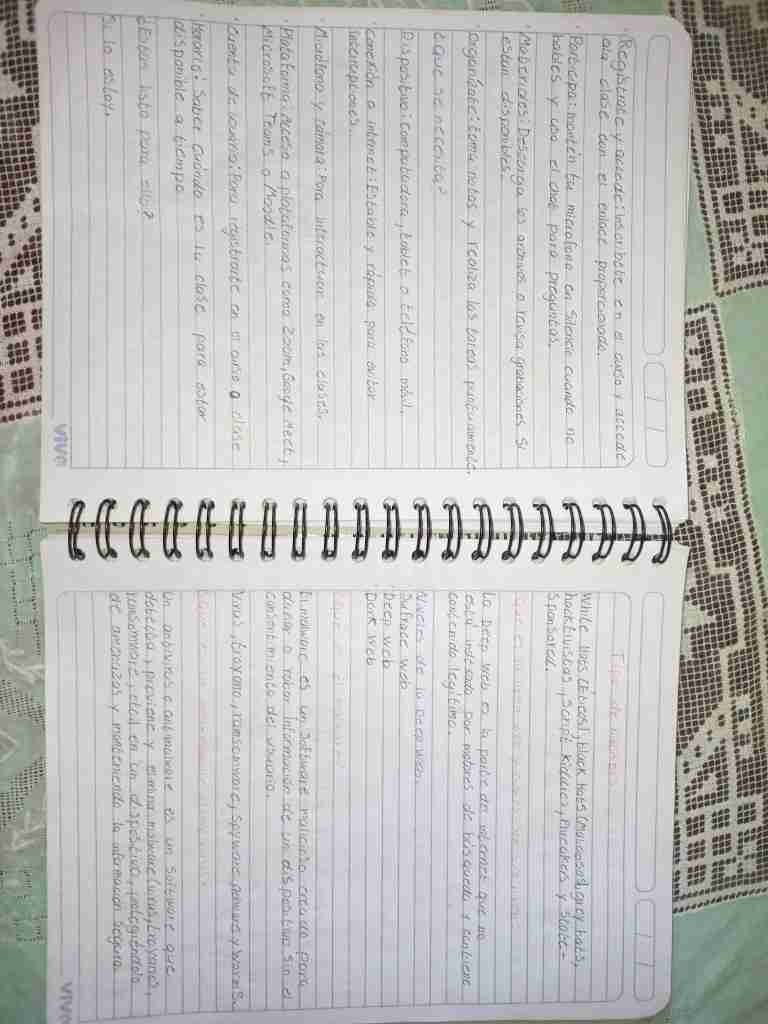 · Registrate y accede: Inscribete en el curso y accede
a la clase con el enlace proporcionado.
· Participa: mantén tu microfono en silencio cuando no
hables y usa el chat para preguntas.
· Materiales: Descarga los archivos o revisa grabaciones si
estan disponibles.
· Organízate: toma notas y realiza las tareas
¿Que se necesita?
Dispositivo: computadora, tablet o teléfono móvil.
· Conexión a internet: Estable y rápida para evitar
· Micrófono y cámara: Para en las clases.
· Plataforma: Acceso a plataformas como Zoom, Google Meet,
Microsoft Teams o Moodle.
· Cuenta de usuario: Para registrarte en el curso o clase
· Horario: Saber cuándo es tu clase para estar
disponible a tiempo
¿Estan listo para ello?
Si lo estoy.
vivo
Tipos de hackers
White Hats (Éticos), black hats grey hats,
hacktivistas, Script Kiddies, Phreakers y State-
Sponsored.
La Deep web es la parte del internet que no
está indexada por motores de búsqueda y contiene
contenido legítimo.
Niveles de la Deep web.
Surface web
· Deep web
· Dark web
El malware es un software malicioso creado para
dañar o robar información de un dispositivo sin el
consentimiento del usuario.
Virus, troyano, ransomware, spyware, y
Un antivirus o antimalware es un software que
detecta, previene y elimina malware (virus, troyanos,
ransomware, etc) en un dispositivo, protegiéndolo
de amenazas y manteniendo la información segura
vivo